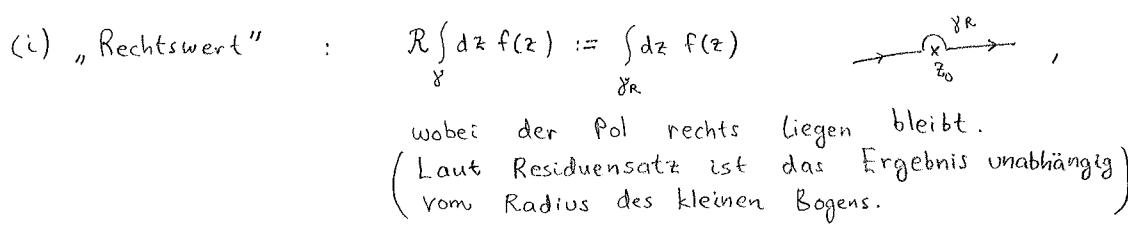 (i) „Rechtswert" : R∫_γ dz f(z) := ∫_{γ_R} dz f(z) γ_R z_0 ,
wobei der Pol rechts liegen bleibt.
(Laut Residuensatz ist das Ergebnis unabhängig
vom Radius des kleinen Bogens.)